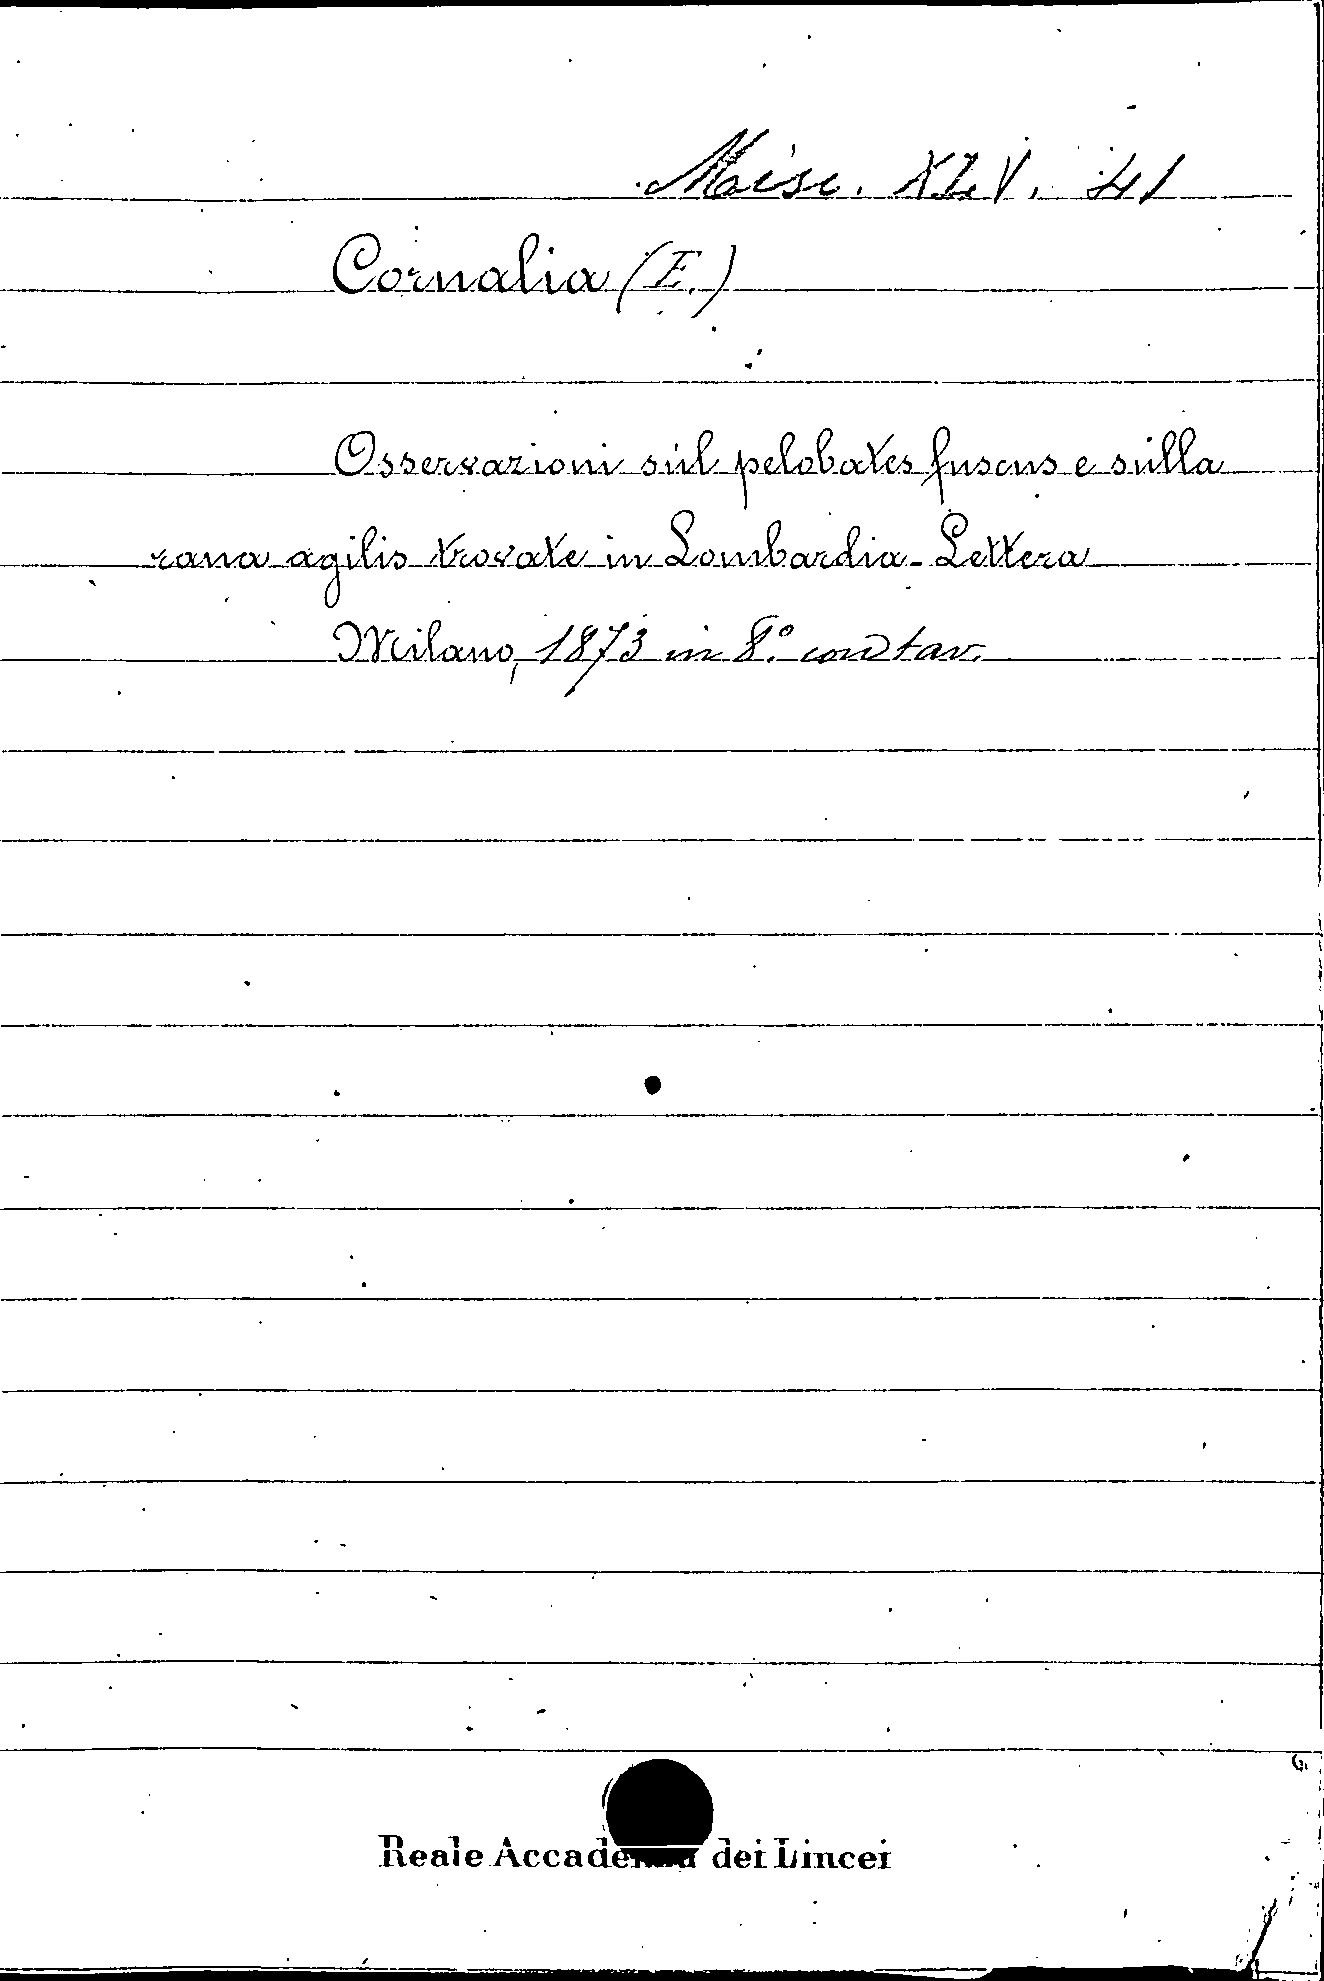 Misc. XLV. 41
Cornalia (E.)
Osservazioni sul pelobates fuscus e sulla
rana agilis trovate in Lombardia - Lettera
Milano, 1873 in 8.° con tav.
Reale Accademia dei Lincei